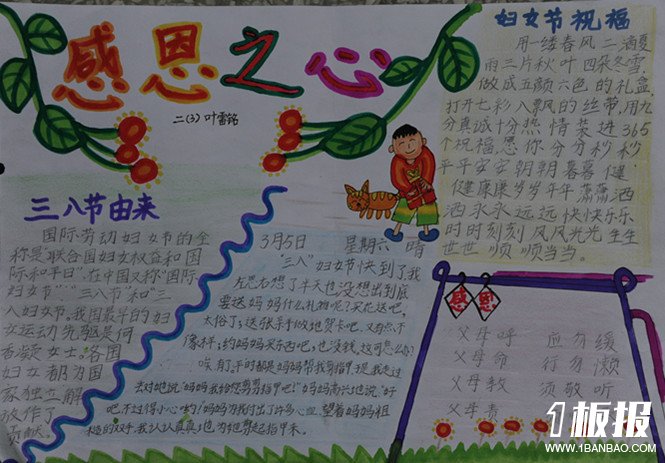 感恩之心
二(3) 叶雷铭
三八节由来
国际劳动妇女节的全
称是"联合国妇女权益和国
际和平日"。在中国又称"国际
妇女节""三八节"和"三
八妇女节。我国最早的妇
女运动先驱是何
香凝女士。各国
妇女都为国
家独立解
放作了
贡献。
3月5日 星期六 晴
"三八"妇女节快到了我
左思右想了半天也没想出到底
要送妈妈什么礼物呢？买花送吧，
太俗了；送张亲手做地贺卡吧，又有点不
像样；约妈妈买东西吧，也没钱，这可怎么办？
唉，有了，平时都是妈妈帮我剪指甲，
去对她说："妈妈我给您剪剪指甲吧！"妈妈高兴地说："好
吧，不过得小心哟！妈妈为我付出了许多心血，望着妈妈粗
糙的双手，我认认真真地为她剪起指甲来。
妇女节祝福
用一缕春风 二滴夏
雨 三片秋叶 四朵冬雪，
做成五颜六色的礼盒，
打开七彩八飘风的丝带，用九
分真诚十分热情装进365
个祝福，愿你分分秒秒
平平安安朝朝暮暮健
健康康岁岁年年潇潇洒
洒永永远远快快乐乐
时时刻刻风风光光生生
世世顺顺当当。
感恩
父母呼 应勿缓
父母命 行勿懒
父母教 须敬听
父母责
1板报
WWW.1BANBAO.COM